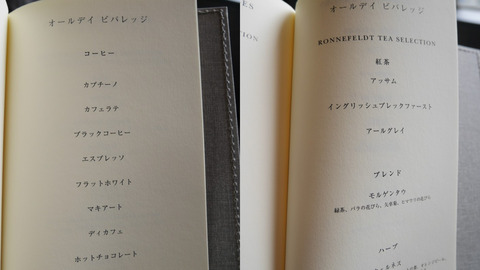 オールデイ ビバレッジ
コーヒー
カプチーノ
カフェラテ
ブラックコーヒー
エスプレッソ
フラットホワイト
マキアート
ディカフェ
ホットチョコレート
オールデイ ビバレッジ
RONNEFELDT TEA SELECTION
紅茶
アッサム
イングリッシュブレックファースト
アールグレイ
ブレンド
モルゲンタウ
緑茶、バラの花びら、矢車菊、ヒマワリの花びら
ハーブ